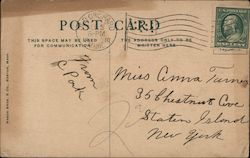 POST CARD
THIS SPACE MAY BE USED
FOR COMMUNICATION
THE ADDRESS ONLY TO BE
WRITTEN HERE
From
C Park
Miss Anna Turner
35 Chestnut Ave
Staten Island
New York